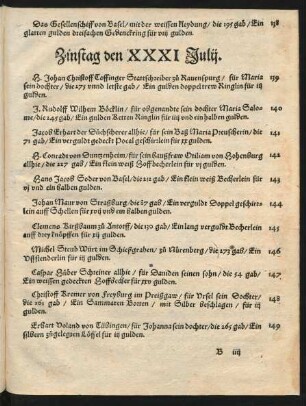 Das Gesellenschiff von Basel / mit der weissen kleydung / die 195 gab / Ein 138
glatten gulden dreifachen Gedenckring für viij gulden.
Zinstag den XXXI Julij.
H. Johan Christoff Toffinger Stattschreiber zů Rauenspurg / für Maria 139
sein dochter / die 275 vnnd letste gab / Ein gulden doppeltrem Ringlin für iij
gulden.
J. Rudolff Wilhem Böcklin / für obgenandte sein dochter Maria Salo= 140
me / die 245 gab / Ein gulden Ketten Ringlin für iiij vnd ein halben gulden.
Jacob Erhart der Sechserherr allhie / für sein Baß Maria Preuscherin / die 141
71 gab / Ein verguldt gedeckt Pocal geschirrlein für xx gulden.
H. Conradt von Sungenheim / für sein haußfraw Otiliam von Hohenburg 142
allhie / die 227 gab / Ein klein weiß Hoffbecherlein für vj gulden.
Hans Jacob Soder von Basel / die 212 gab / Ein klein weiß Becherlein für 143
vj vnd ein halben gulden.
Johan Maur von Straßburg / die 67 gab / Ein verguldt Doppel geschirr= 144
lein auff Schellen für xvj vnd ein halben gulden.
Clemens Kirßbaum zů Antorff / die 130 gab / Ein lang vergult Becherlein 145
auff drey knöpffen für xij gulden.
Michel Straub Würt im Schießgraben / zů Nürenberg / die 279 gab / Ein 146
Visierlin für ij gulden.
Caspar Hüber Schreiner allhie / für Daniden seinen sohn / die 54 gab / 147
Ein weissen gedeckten Hoffbecher für xxv gulden.
Christoff Kremer von Freyburg im Preißgaw / für Vrsel sein Dochter / 148
die 261 gab / Ein Sammaten Borten / mit Silber beschlagen / für iij
gulden.
Erhart Voland von Tübingen / für Johanna sein dochter / die 265 gab / Ein 149
silbern zůgelegten Löffel für iij gulden.
B iiij